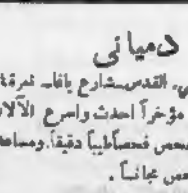 دمياني
القدس شارع يافا نمرة
مؤخراً احدث واسرع الآلات
فحصاً طبياً دقيقاً ومساعد
مجاناً .